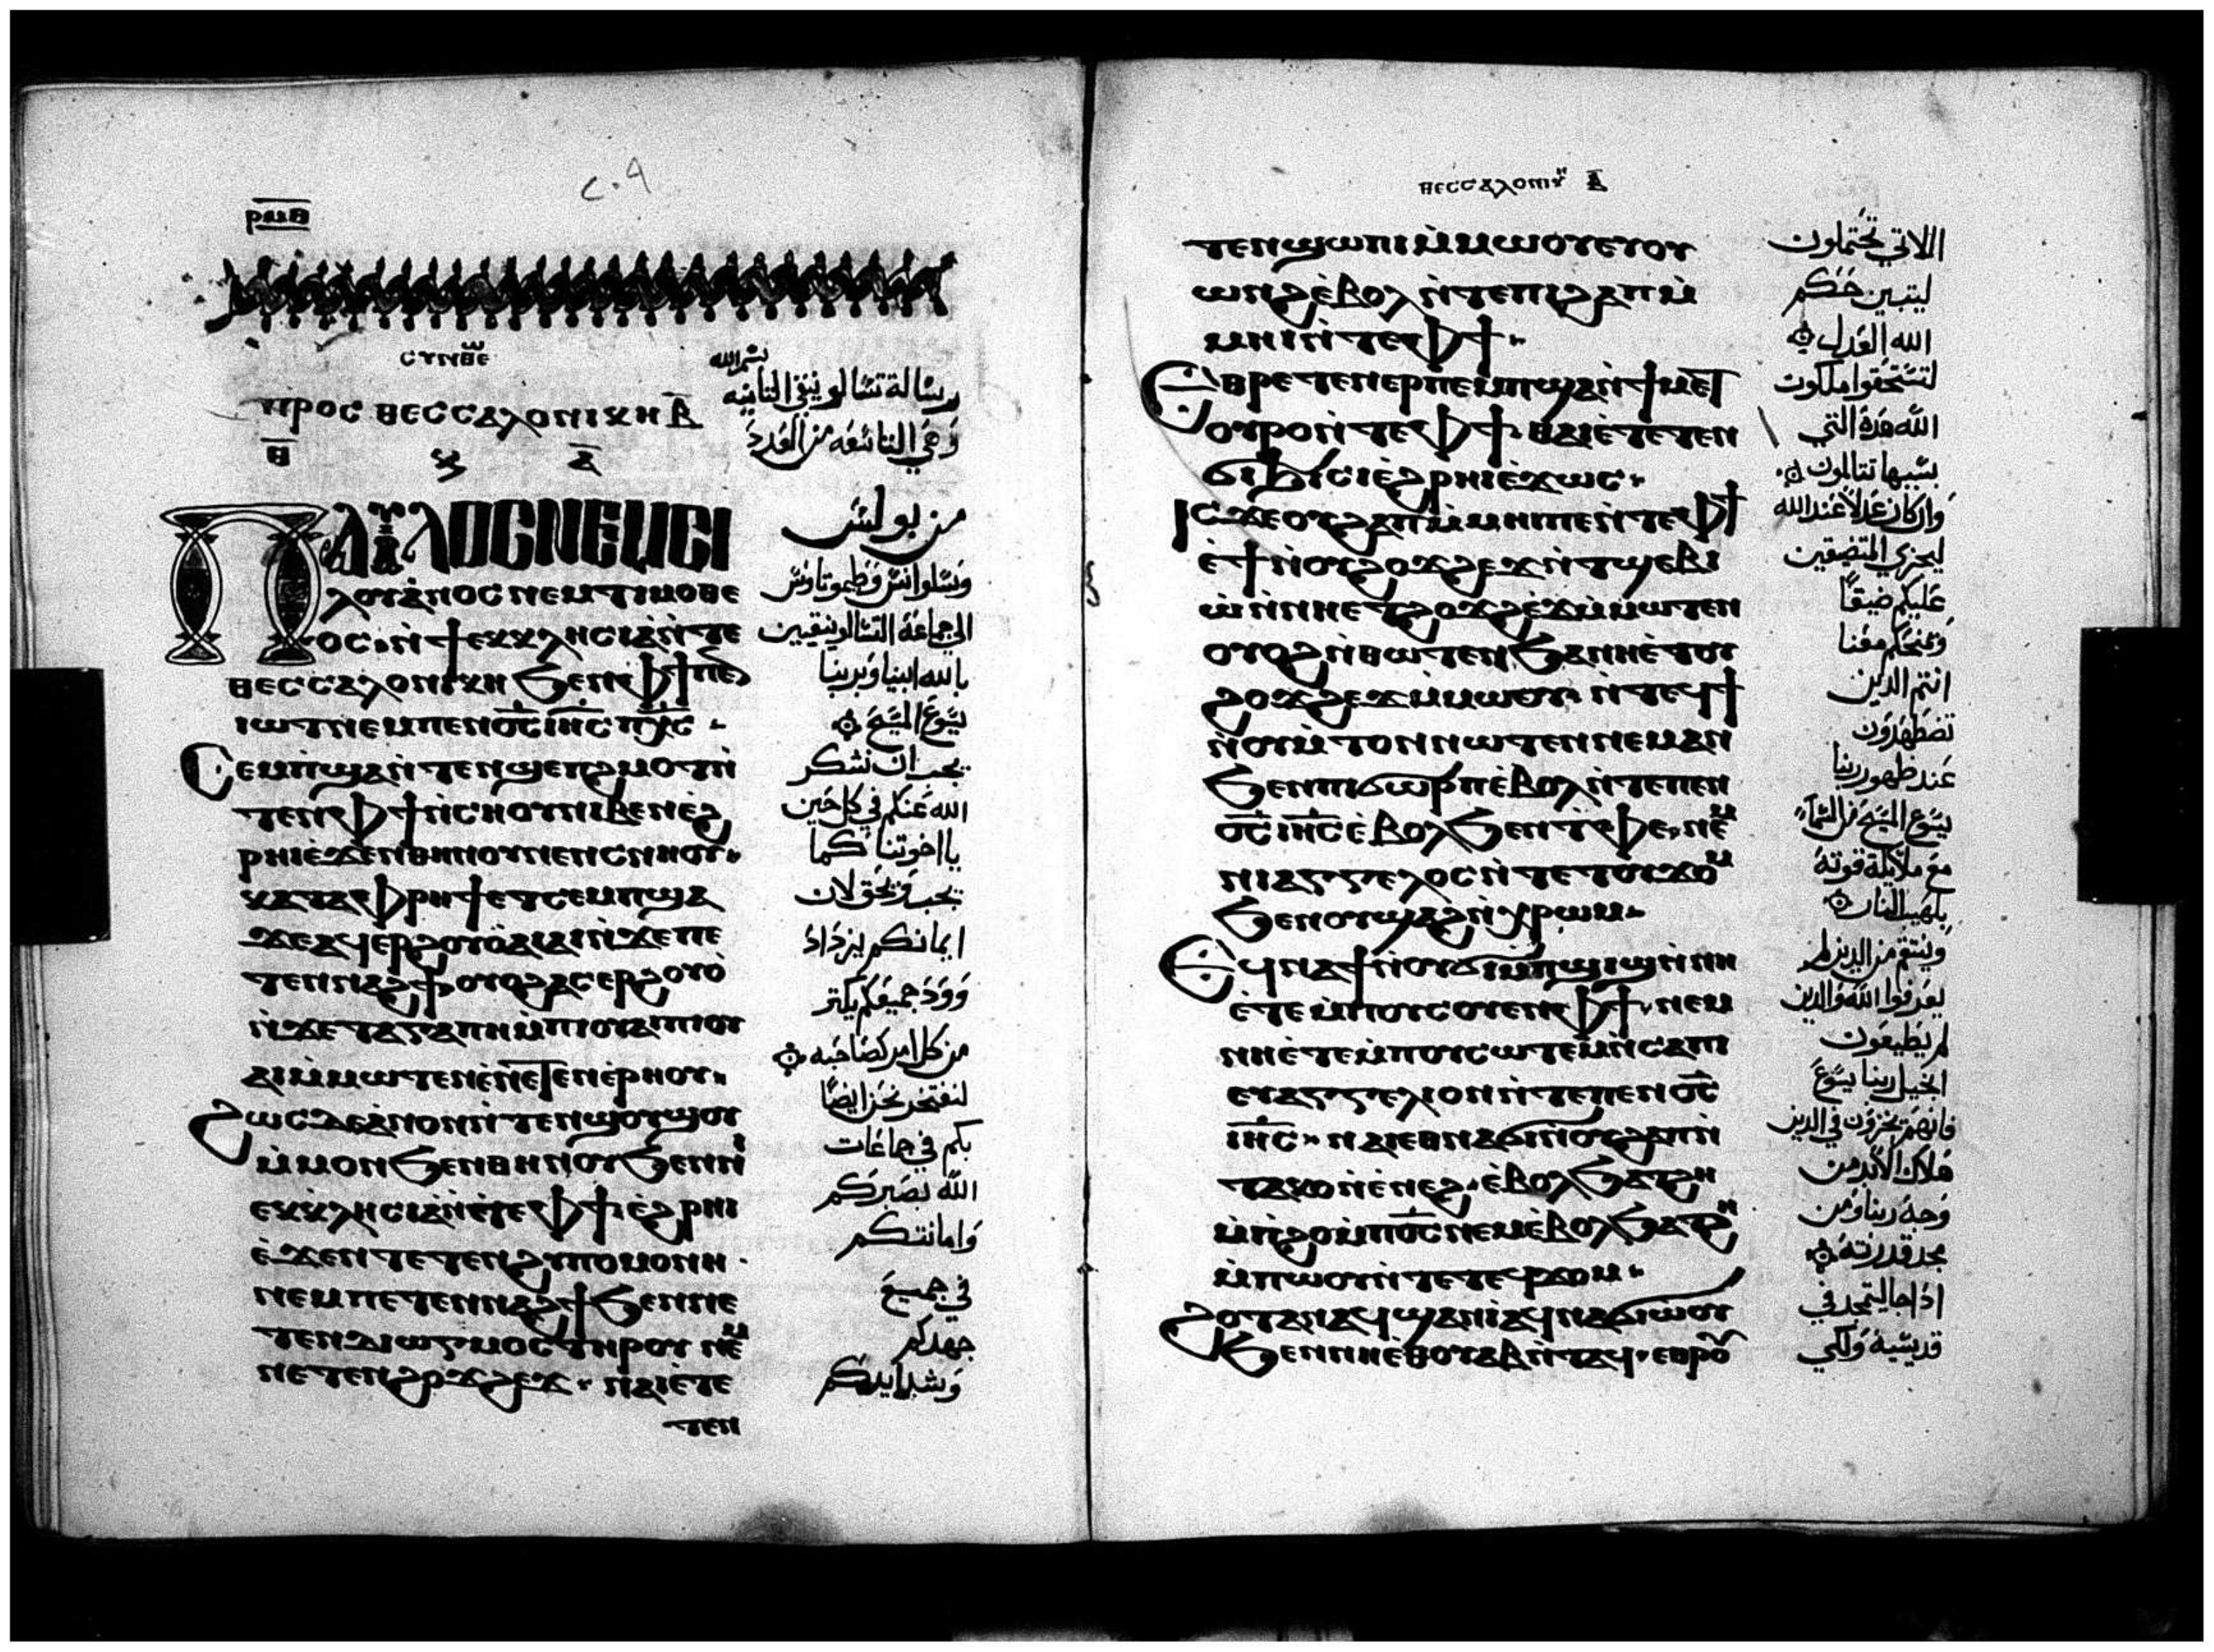 ⲣⲙⲑ
ⲥⲩⲛⲑⲉⲱ
ⲡⲣⲟⲥ ⲑⲉⲥⲥⲁⲗⲟⲛⲓⲕⲏ ⲃ̅
ⲑ̅ ⲕ ⲁ̅
ⲡⲁⲩⲗⲟⲥ ⲛⲉⲙ ⲥⲓ
ⲗⲟⲩⲁⲛⲟⲥ ⲛⲉⲙ ⲧⲓⲙⲟⲑⲉ
ⲟⲥ · ⲛ̀ϯⲉⲕⲕⲗⲏⲥⲓⲁ ⲛ̀ⲧⲉ
ⲑⲉⲥⲥⲁⲗⲟⲛⲓⲕⲏ ϧⲉⲛ ⲫϯ ⲡⲉⲛ
ⲓⲱⲧ ⲛⲉⲙ ⲡⲉⲛⲟ̅ⲥ̅ ⲓⲏ̅ⲥ̅ ⲡⲭ̅ⲥ̅ ·
ⲥⲉⲙⲡϣⲁ ⲛ̀ⲧⲉⲛϣⲉⲡϩⲙⲟⲧ ⲛ̀
ⲧⲉⲛ ⲫϯ ⲛ̀ⲥⲏⲟⲩ ⲛⲓⲃⲉⲛ ⲉ̀ϩ
ⲣⲏⲓ ⲉ̀ϫⲉⲛ ⲑⲏⲛⲟⲩ ⲛⲉⲛⲥⲛⲏⲟⲩ ·
ⲕⲁⲧⲁ ⲫⲣⲏϯ ⲉⲧⲥⲉⲙⲡϣⲁ
ϫⲉ ⲁϥⲉⲣϩⲟⲩⲟ̀ ⲁⲓⲁⲓ ⲛ̀ϫⲉ ⲡⲉ
ⲧⲉⲛⲛⲁϩϯ ⲟⲩⲟϩ ⲁⲥⲉⲣϩⲟⲩⲟ̀
ⲛ̀ϫⲉ ϯⲁⲅⲁⲡⲏ ⲙ̀ⲡⲓⲟⲩⲁⲓ ⲡⲓⲟⲩ
ⲁⲓ ⲙ̀ⲙⲱⲧⲉⲛ ⲉ̀ⲛⲉⲧⲉⲛⲉ̀ⲣⲏⲟⲩ ·
ϩⲱⲥⲇⲉ ⲁⲛⲟⲛ ⲛ̀ⲧⲉⲛϣⲟⲩϣⲟⲩ
ⲙ̀ⲙⲟⲛ ϧⲉⲛ ⲑⲏⲛⲟⲩ ϧⲉⲛ ⲛⲓ
ⲉⲕⲕⲗⲏⲥⲓⲁ ⲛ̀ⲧⲉ ⲫϯ ⲉ̀ϩⲣⲏⲓ
ⲉ̀ϫⲉⲛ ⲧⲉⲧⲉⲛϩⲩⲡⲟⲙⲟⲛⲏ ·
ⲛⲉⲙ ⲡⲉⲧⲉⲛⲛⲁϩϯ ϧⲉⲛ ⲛⲉ
ⲧⲉⲛⲇⲓⲱⲅⲙⲟⲥ ⲧⲏⲣⲟⲩ ⲛⲉⲙ
ⲛⲉⲧⲉⲛϩⲟϫϩⲉϫ · ⲛⲁⲓ ⲉ̀ⲧⲉ
ⲧⲉⲛ
بسم الله
رسالة تسالونيقي الثانيه
وهي التاسعه من العدد
من بولس
وسلوانس وطيموتاوس
الي جماعة التسالونيقيين
بالله ابينا وبربنا
يسوع المسيح
يجب ان نشكر
الله عنكم في كل حين
يا اخوتنا كما
يجب ويحق لان
ايمانكم يزداد
وود جميعكم يكثر
من كل امر لصاحبه
لنفتخر نحن ايضًا
بكم في جماعات
الله بصبركم
وامانتكم
في جميع
جهدكم
وشدايدكم
ⲑⲉⲥⲥⲁⲗⲟⲛⲓⲕⲏ ⲃ̅
ⲧⲉⲛϣⲱⲡⲓ ⲙ̀ⲙⲱⲟⲩ ⲉⲩⲟⲩ
ⲱⲛϩ ⲉ̀ⲃⲟⲗ ⲛ̀ⲧⲉ ⲡⲓϩⲁⲡ ⲙ̀
ⲙⲏⲓ ⲛ̀ⲧⲉ ⲫϯ ·
ⲉⲑⲣⲉⲧⲉⲛⲉⲣⲡⲉⲙⲡϣⲁ ⲛ̀ϯⲙⲉⲧ
ⲟⲩⲣⲟ ⲛ̀ⲧⲉ ⲫϯ · ⲑⲁⲓ ⲉ̀ⲧⲉⲧⲉⲛ
ϭⲓϧⲓⲥⲓ ⲉ̀ϩⲣⲏⲓ ⲉ̀ϫⲱⲥ ·
ⲓⲥϫⲉ ⲟⲩϩⲁⲡ ⲙ̀ⲙⲏⲓ ⲡⲉ ⲛ̀ⲧⲉ ⲫϯ
ⲉ̀ϯ ⲛ̀ⲟⲩϩⲟϫϩⲉϫ ⲛ̀ⲧϣⲉⲃⲓ
ⲱ̀ ⲛ̀ⲛⲏⲉⲧϩⲟϫϩⲉϫ ⲙ̀ⲙⲱⲧⲉⲛ
ⲟⲩⲟϩ ⲛ̀ⲑⲱⲧⲉⲛ ϧⲁ ⲛⲏⲉ̀ⲧⲟⲩ
ϩⲟϫϩⲉϫ ⲙ̀ⲙⲱⲟⲩ · ⲛ̀ⲧⲉϥϯ
ⲛ̀ⲟⲩⲙ̀ⲧⲟⲛ ⲛⲱⲧⲉⲛ ⲛⲉⲙⲁⲛ
ϧⲉⲛ ⲡⲓϭⲱⲣⲡ ⲉ̀ⲃⲟⲗ ⲛ̀ⲧⲉ ⲡⲉⲛ
ⲟ̅ⲥ̅ ⲓⲏ̅ⲥ̅ ⲉ̀ⲃⲟⲗ ϧⲉⲛ ⲧⲫⲉ · ⲛⲉⲙ
ⲛⲓⲁⲅⲅⲉⲗⲟⲥ ⲛ̀ⲧⲉ ⲧⲉϥϫⲟⲙ
ϧⲉⲛ ⲟⲩϣⲁϩ ⲛ̀ⲭⲣⲱⲙ ·
ⲉϥⲛⲁϯ ⲛ̀ⲟⲩϭⲓⲙ̀ⲡϣⲓϣ ⲛ̀ⲛⲏ
ⲉ̀ⲧⲉ ⲙ̀ⲡⲟⲩⲥⲟⲩⲉⲛ ⲫϯ · ⲛⲉⲙ
ⲛⲏⲉ̀ⲧⲉ ⲙ̀ⲡⲟⲩⲥⲱⲧⲉⲙ ⲛ̀ⲥⲁ ⲡⲓ
ⲉⲩⲁⲅⲅⲉⲗⲓⲟⲛ ⲛ̀ⲧⲉ ⲡⲉⲛⲟ̅ⲥ̅
ⲓⲏ̅ⲥ̅ · ⲛⲁⲓ ⲉⲑⲛⲁϭⲓ ⲛ̀ⲟⲩϩⲁⲡ ⲛ̀
ⲧⲁⲕⲟ ⲛ̀ⲉ̀ⲛⲉϩ · ⲉ̀ⲃⲟⲗ ϧⲁⲧϩⲏ
ⲙ̀ⲡϩⲟ ⲙ̀ⲡⲟ̅ⲥ̅ ⲛⲉⲙ ⲉ̀ⲃⲟⲗ ϧⲁⲧϩⲏ
ⲙ̀ⲡⲱⲟⲩ ⲛ̀ⲧⲉ ⲧⲉϥϫⲟⲙ ·
ϩⲟⲧⲁⲛ ⲁϥϣⲁⲛⲓ̀ ⲁϥⲛⲁϭⲓⲱ̀ⲟⲩ
ϧⲉⲛ ⲛⲏⲉ̀ⲑⲟⲩⲁⲃ ⲛ̀ⲧⲁϥ · ⲉⲑⲣⲟⲩ
اللاتي تحتملون
ليتبين حكم
الله العدل
لتستحقوا ملكوت
الله هذة التي
بسببها تتالمون
وان كان عدلاً عند الله
ليجزي المتضيقين
عليكم ضيقًا
ويمنحكم معنا
انتم الدين
تضطهدون
عند ظهور ربنا
يسوع المسيح من السماء
مع ملايكة قوته
بلهيب النار
وينتقم من الدين لم
يعرفوا الله والدين
لم يطيعون
انجيل ربنا يسوع
فانهم يخزون في الدين
هلاك الابد من
وجه ربنا ومن
مجد قدرته
اذا جا ليتمجد في
قديسيه ولكي